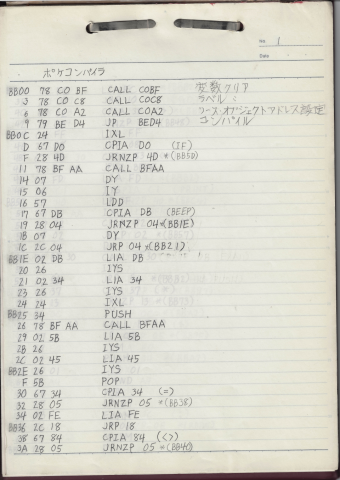 No. 1
Date
ポケコンパイラ
BB00 78 C0 BF CALL C0BF 変数クリア
3 78 C0 C8 CALL C0C8 ラベル 〃
6 78 C0 A2 CALL C0A2 ソース・オブジェクトアドレス設定
9 79 BE D4 JP BED4 コンパイル
BB0C 24 IXL
D 67 D0 CPIA D0 (IF)
F 28 4D JRNZP 4D *(BB5D)
11 78 BF AA CALL BFAA
14 07 DY
15 06 IY
16 57 LDD
17 67 DB CPIA DB (BEEP)
19 28 04 JRNZP 04 *(BB1E)
1B 07 DY
1C 2C 04 JRP 04 *(BB21)
BB1E 02 DB LIA DB
20 26 IYS
21 02 34 LIA 34
23 26 IYS
24 24 IXL
BB25 34 PUSH
26 78 BF AA CALL BFAA
29 02 5B LIA 5B
2B 26 IYS
2C 02 45 LIA 45
BB2E 26 IYS
F 5B POP
30 67 34 CPIA 34 (=)
32 28 05 JRNZP 05 *(BB38)
34 02 FE LIA FE
BB36 2C 18 JRP 18
38 67 84 CPIA 84 (<>)
3A 28 05 JRNZP 05 *(BB40)